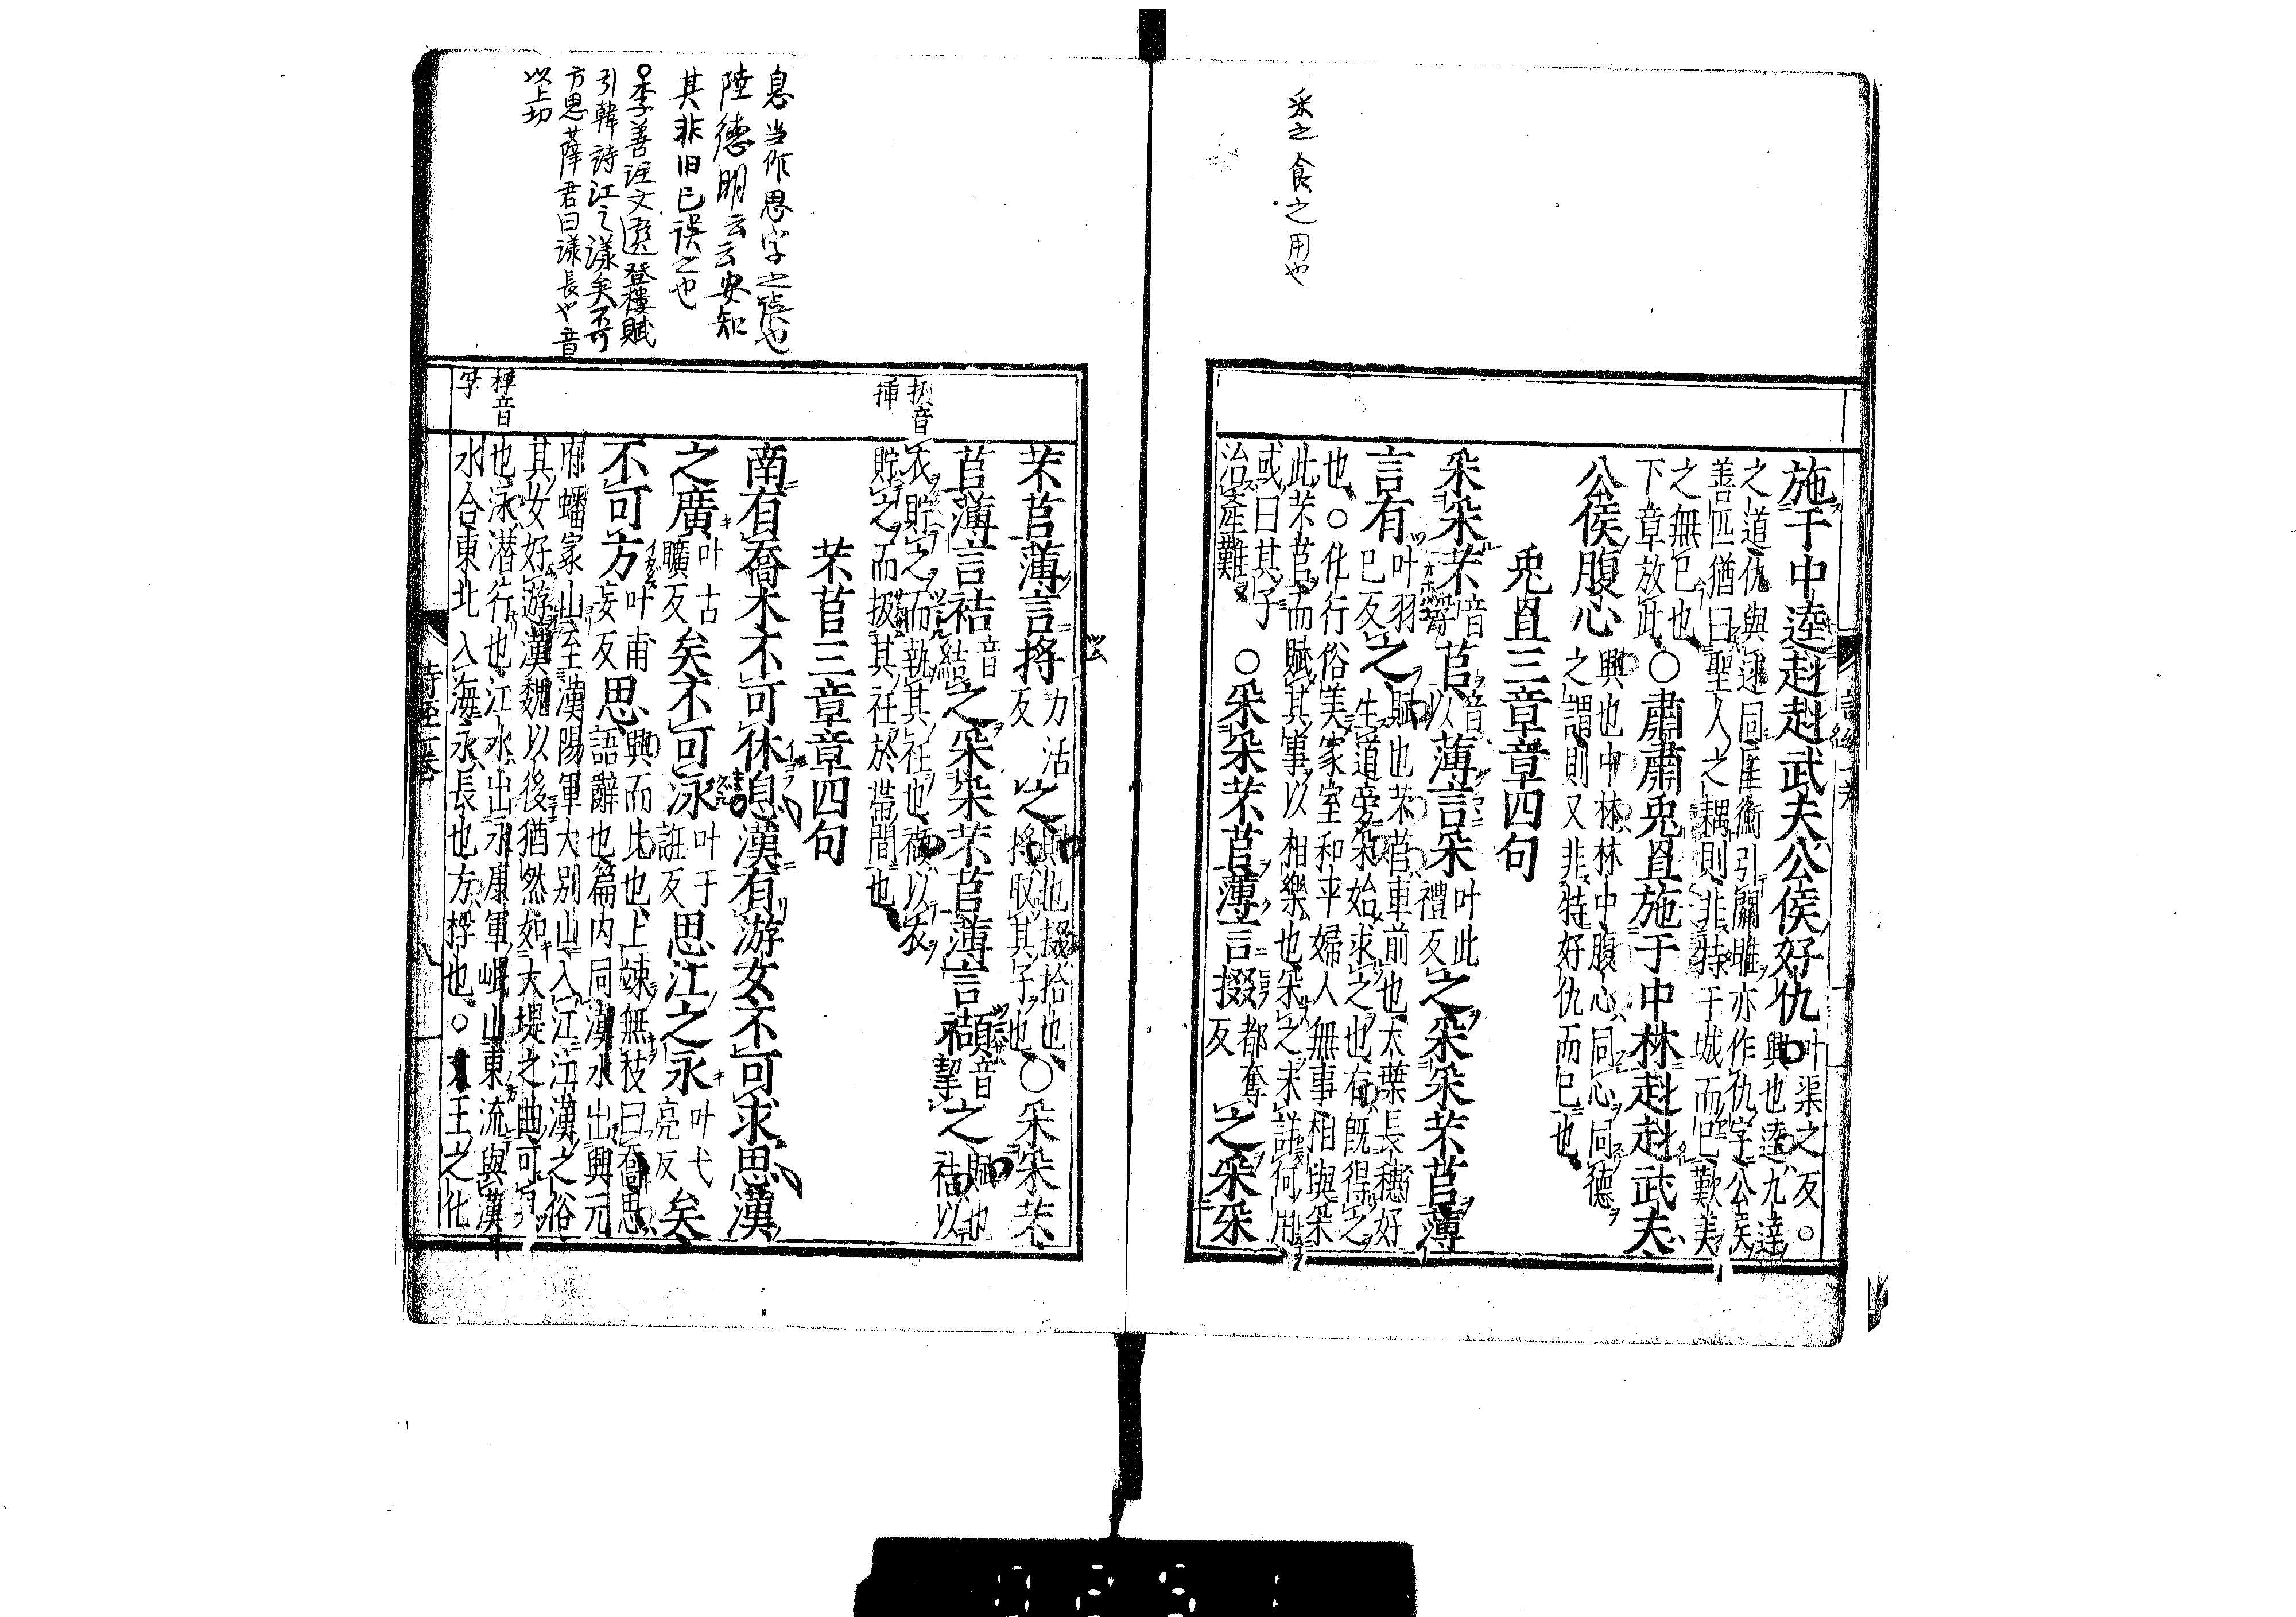 采之食之用也
施于中逵赳赳武夫公侯好仇 叶渠之反○興也逵九逵
之道仇與逑同匡衡引關雎亦作仇字公侯
善匹猶曰聖人之耦則非特干城而已歎美
之無已也
下章放此○肅肅兎罝施于中林赳赳武夫
公侯腹心 興也中林林中腹心同心同德
之謂則又非特好仇而已也
兎罝三章章四句
采采芣 音浮 苢 音以 薄言采 叶此禮反 之采采芣苢薄
言有 叶羽已反 之 賦也芣苢車前也大葉長穗好
生道旁采始求之也有既得之
也○化行俗美家室和平婦人無事相與采
此芣苢而賦其事以相樂也采之未詳何用
或曰其子
治產難 ○采采芣苢薄言掇 都奪反 之采采
芣苢薄言捋 力活反 之 賦也掇拾也
捋取其子也 ○采采芣
苢薄言袺 音結 之采采芣苢薄言襭 音挈 之 賦也
袺以
衣貯之而執其衽也襭以衣
貯之而扱其衽於帶間也
芣苢三章章四句
南有喬木不可休息漢有游女不可求思漢
之廣 叶古曠反 矣不可泳 叶于誑反 思江之永 叶弋亮反 矣
不可方 叶甫妄反 思 興而比也上竦無枝曰喬思
語辭也篇内同漢水出興元
府嶓冢山至漢陽軍大别山入江江漢之俗
其女好游漢魏以後猶然如大堤之曲可見
也泳潛行也江水出永康軍岷山東流與漢
水合東北入海永長也方桴也○文王之化
扱音
挿
桴音
孚
息当作思字之誤也
陸徳明云云安知
其非旧已誤之也
○李善註文選登樓賦
引韓詩江之漾矣不可
方思薛君曰漾長也音
以上切
詩經一卷 八